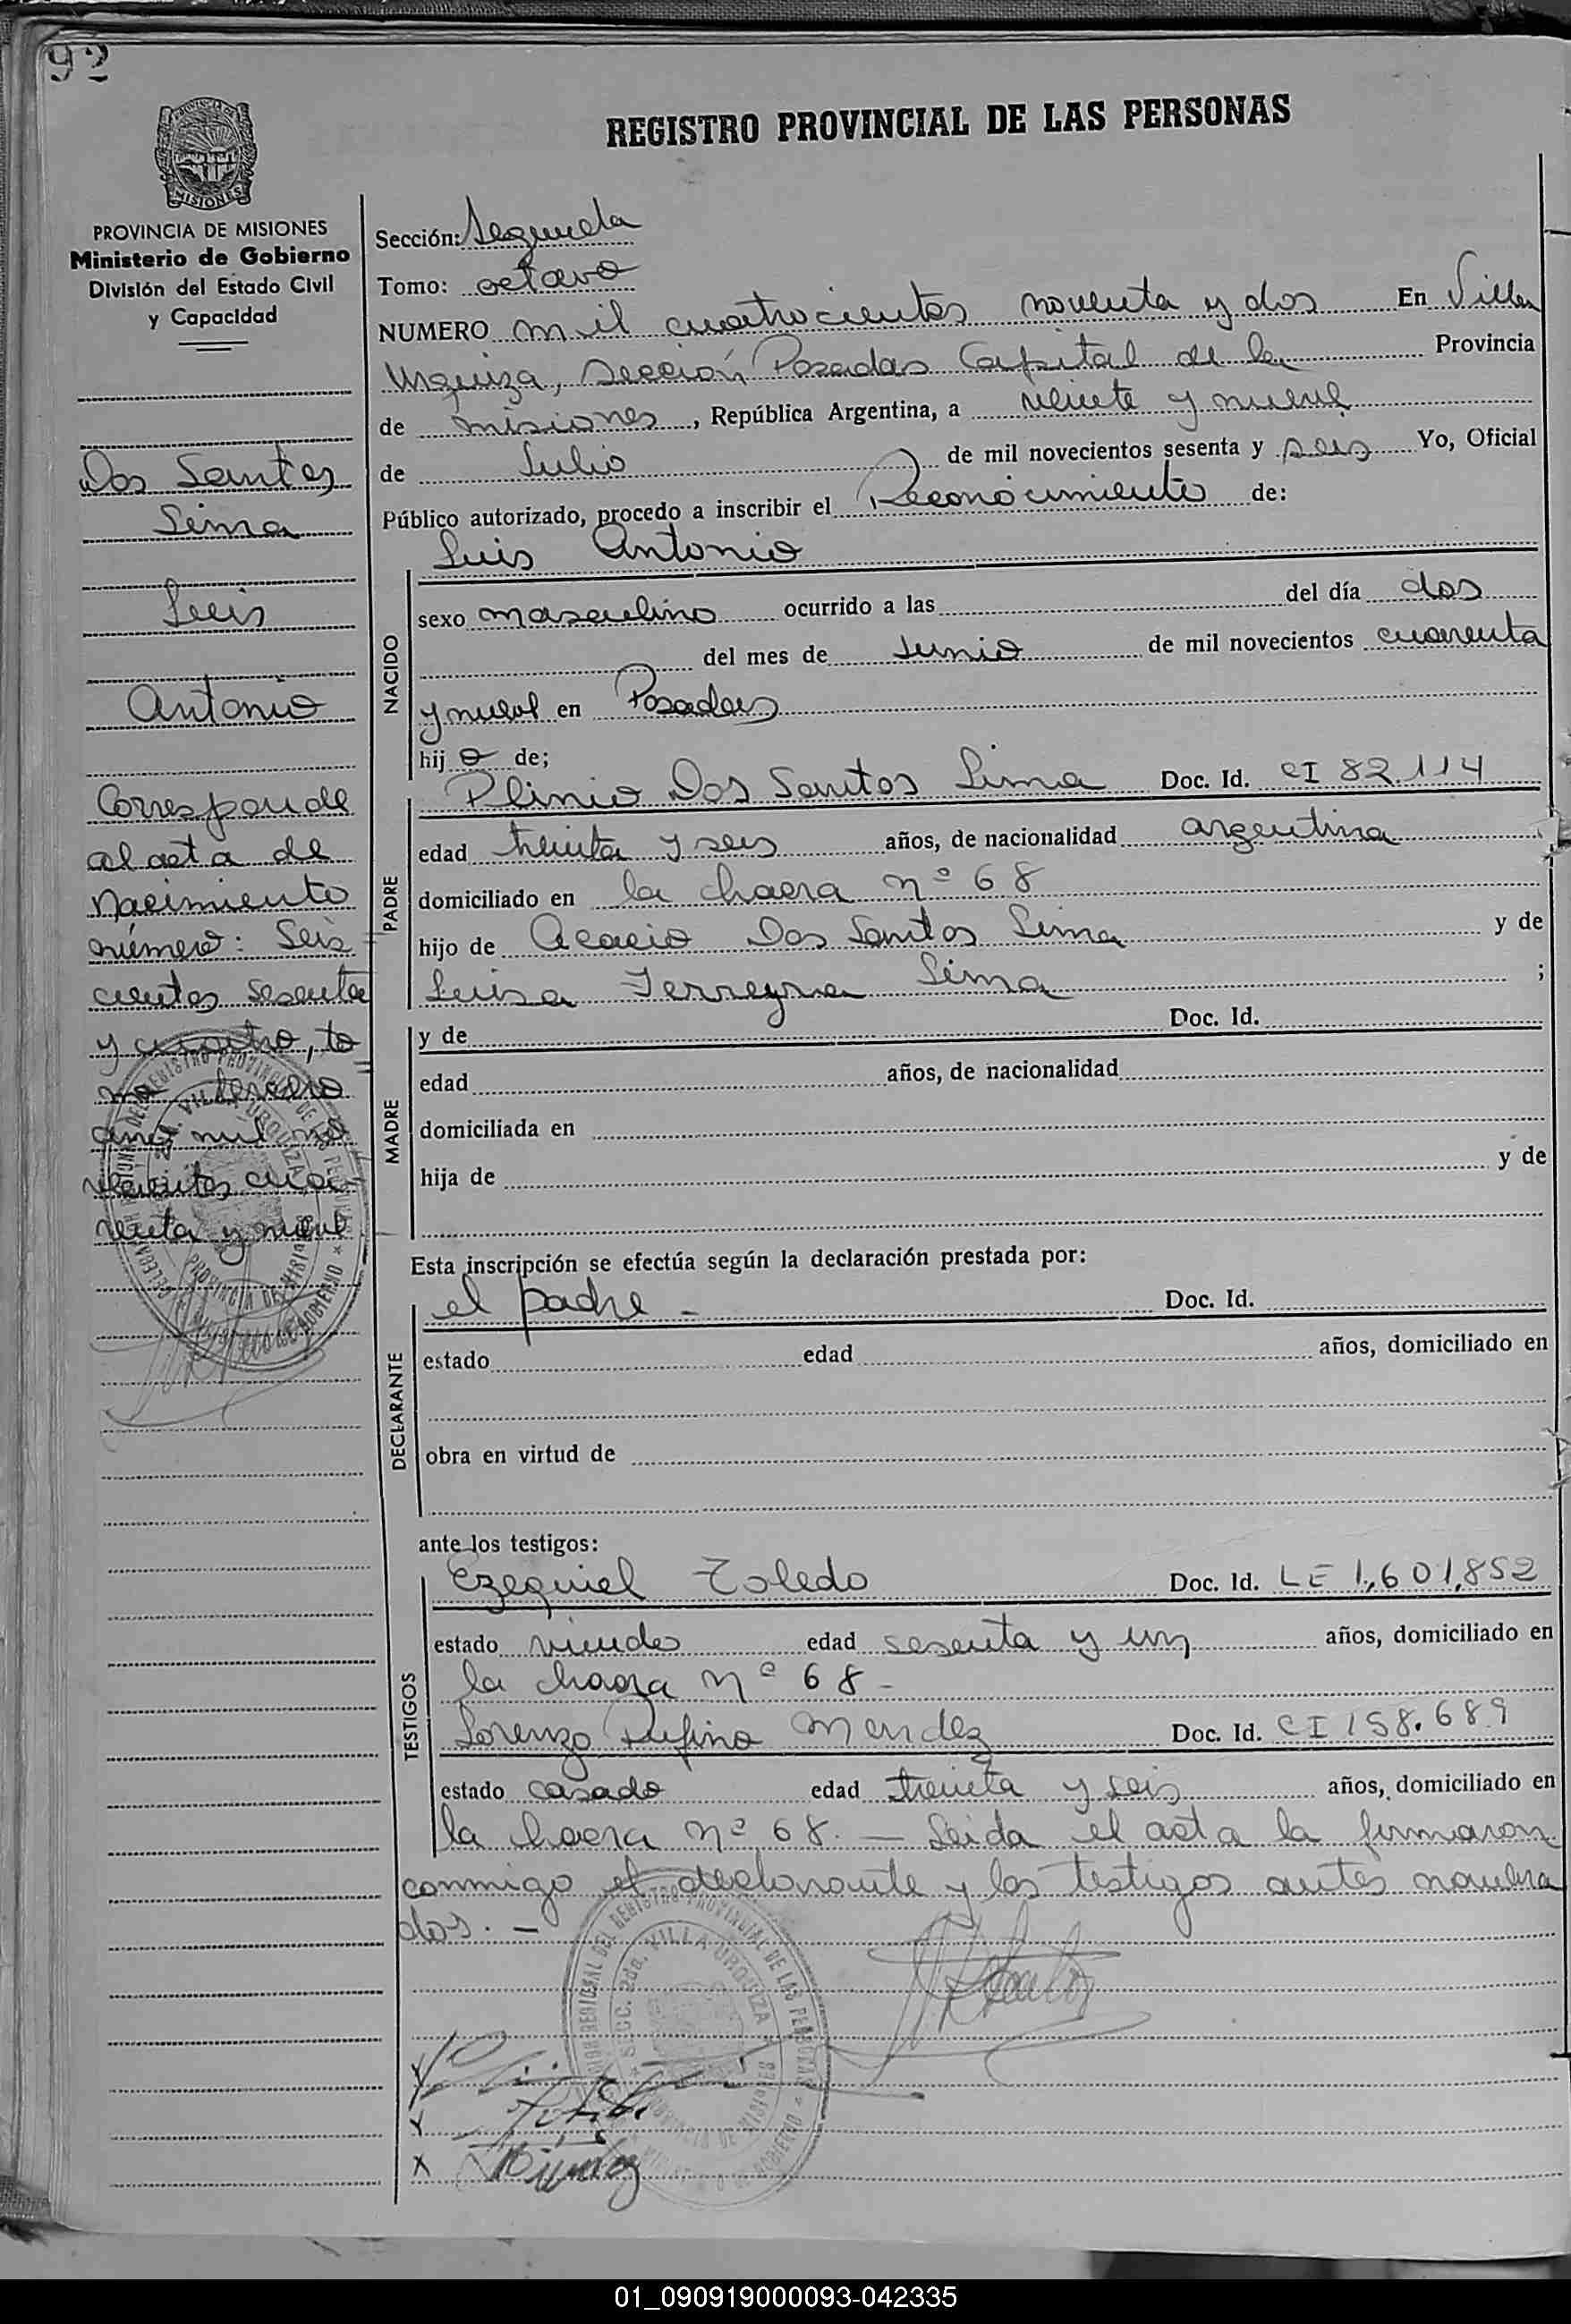 92
REGISTRO PROVINCIAL DE LAS PERSONAS
MISIONES
PROVINCIA DE MISIONES
Ministerio de Gobierno
División del Estado Civil
y Capacidad
Dos Santos
Lima
Luis
Antonio
Corresponde
al acta de
nacimiento
número: Seis
cientos sesenta
y cuatro, to=
mo tercero
año mil no
vecientos cua-
renta y nueve
Sección: Segunda
Tomo: octavo
NUMERO mil cuatrocientos noventa y dos En Villa
Urquiza, Sección Posadas Capital de la Provincia
de misiones, República Argentina, a veinte y nueve
de Julio de mil novecientos sesenta y seis Yo, Oficial
Público autorizado, procedo a inscribir el Reconocimiento de:
Luis Antonio
NACIDO
sexo masculino ocurrido a las del día dos
del mes de Junio de mil novecientos cuarenta
y nueve en Posadas
hijo de;
Plinio Dos Santos Lima Doc. Id. CI 82.114
PADRE
edad treinta y seis años, de nacionalidad argentina
domiciliado en la chacra nº 68
hijo de Acacio Dos Santos Lima y de
Luisa Ferreyra Lima ;
MADRE
y de Doc. Id.
edad años, de nacionalidad
domiciliada en
hija de y de
Esta inscripción se efectúa según la declaración prestada por:
el padre - Doc. Id.
DECLARANTE
estado edad años, domiciliado en
obra en virtud de
ante los testigos:
Ezequiel Toledo Doc. Id. LE 1,601,852
TESTIGOS
estado viudo edad sesenta y un años, domiciliado en
la chacra nº 68 -
Lorenzo Rufino Mendez Doc. Id. CI 158.689
estado casado edad treinta y seis años, domiciliado en
la chacra nº 68. — Leida el acta la firmaron
conmigo el declarante y los testigos antes nombra
dos. -
SECC. 2da. VILLA URQUIZA
PROVINCIA DE MISIONES
01_090919000093-042335